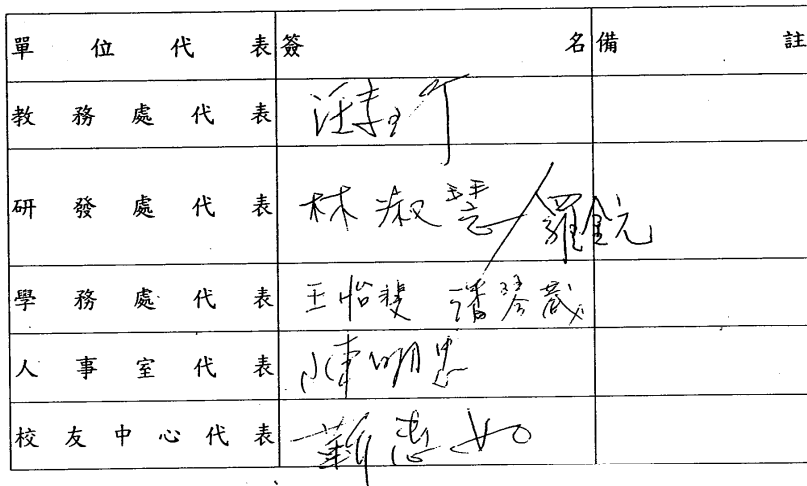 單位代表 簽名 備註
教務處代表
研發處代表 林淑慧 羅鈺元
學務處代表 王怡斐 潘琴葳
人事室代表 陳明忠
校友中心代表